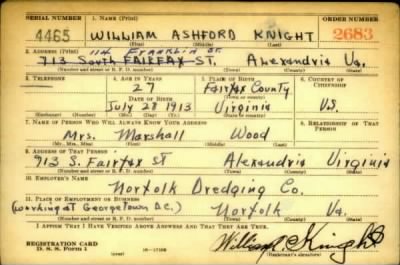 SERIAL NUMBER 1. NAME (Print) ORDER NUMBER
4465 WILLIAM ASHFORD KNIGHT 2683
(First) (Middle) (Last)
2. ADDRESS (Print) 114 Franklin St.
713 South FAIRFAX ST. Alexandria Va.
(Number and street or R. F. D. number) (Town) (County) (State)
3. TELEPHONE 4. AGE IN YEARS 5. PLACE OF BIRTH 6. COUNTRY OF CITIZENSHIP
27 Fairfax County
DATE OF BIRTH (Town or county)
July 28 1913 Virginia U.S.
(Exchange) (Number) (Mo.) (Day) (Yr.) (State or country)
7. NAME OF PERSON WHO WILL ALWAYS KNOW YOUR ADDRESS 8. RELATIONSHIP OF THAT PERSON
Mrs. Marshall Wood
(Mr., Mrs., Miss) (First) (Middle) (Last)
9. ADDRESS OF THAT PERSON
713 S. Fairfax St Alexandria Virginia
(Number and street or R. F. D. number) (Town) (County) (State)
10. EMPLOYER'S NAME
Norfolk Dredging Co.
11. PLACE OF EMPLOYMENT OR BUSINESS
(working at Georgetown D.C.) Norfolk Va.
(Number and street or R. F. D. number) (Town) (County) (State)
I AFFIRM THAT I HAVE VERIFIED ABOVE ANSWERS AND THAT THEY ARE TRUE.
REGISTRATION CARD
D. S. S. Form 1 16-17105 (Registrant's signature)